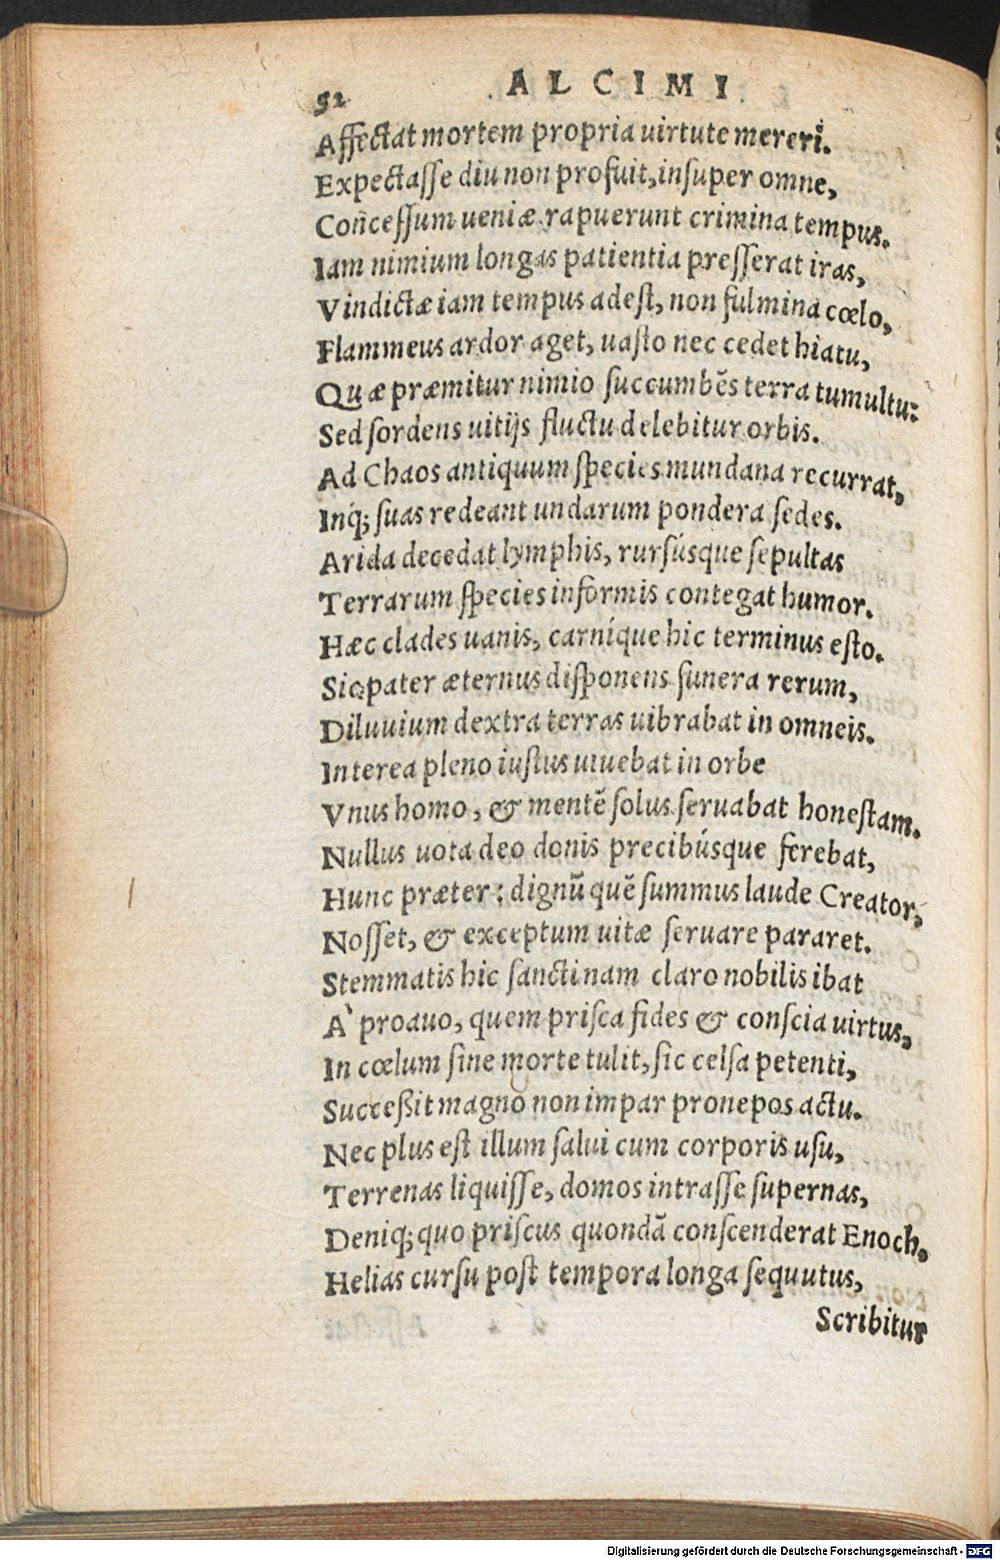 52 ALCIMI
Affectat mortem propria uirtute mereri.
Expectasse diu non profuit, insuper omne,
Concessum ueniæ rapuerunt crimina tempus.
Iam nimium longas patientia presserat iras,
Vindictæ iam tempus adest, non fulmina cœlo,
Flammeus ardor aget, uasto nec cedet hiatu,
Quæ præmitur nimio succumbẽs terra tumultu:
Sed sordens uitijs fluctu delebitur orbis.
Ad Chaos antiquum species mundana recurrat,
Inq; suas redeant undarum pondera sedes.
Arida decedat lymphis, rursúsque sepultas
Terrarum species informis contegat humor.
Hæc clades uanis, carníque hic terminus esto.
Sic pater æternus disponens funera rerum,
Diluuium dextra terras uibrabat in omneis.
Interea pleno iustus uiuebat in orbe
Vnus homo, & mentẽ solus seruabat honestam.
Nullus uota deo donis precibúsque ferebat,
Hunc præter: dignũ quẽ summus laude Creator,
Nosset, & exceptum uitæ seruare pararet.
Stemmatis hic sancti nam claro nobilis ibat
A` proauo, quem prisca fides & conscia uirtus,
In cœlum sine morte tulit, sic celsa petenti,
Succeßit magno non impar pronepos actu.
Nec plus est illum salui cum corporis usu,
Terrenas liquisse, domos intrasse supernas,
Deniq; quo priscus quondã conscenderat Enoch,
Helias cursu post tempora longa sequutus,
Scribitur
Digitalisierung gefördert durch die Deutsche Forschungsgemeinschaft - DFG